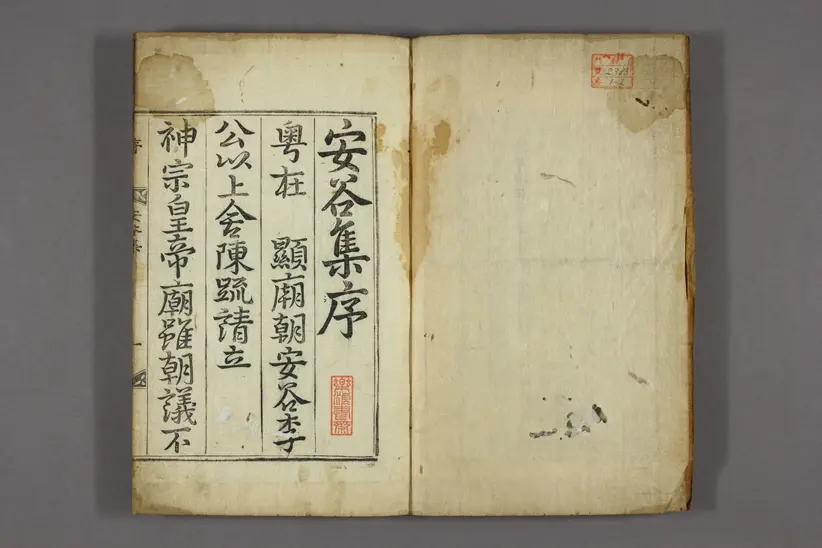 安谷集序
粤在 顯廟朝安谷李
公以上舍陳疏請立
神宗皇帝廟雖朝議不
序
安谷集
一